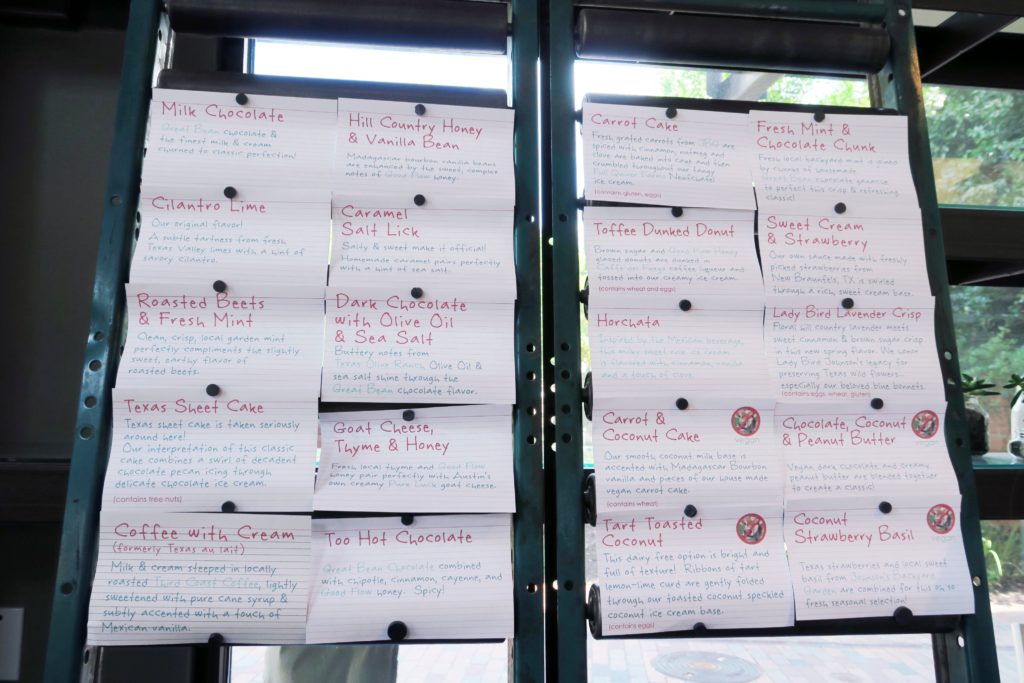 Milk Chocolate
Great Bean chocolate &
the finest milk & cream
churned to classic perfection!
Hill Country Honey
& Vanilla Bean
Madagascar bourbon vanilla beans
are enhanced by the sweet, complex
notes of Good Flow honey.
Cilantro Lime
Our original flavor!
A subtle tartness from fresh
Texas Valley limes with a hint of
savory cilantro.
Caramel
Salt Lick
Salty & sweet make it official!
Homemade caramel pairs perfectly
with a hint of sea salt.
Roasted Beets
& Fresh Mint
Clean, crisp, local garden mint
perfectly compliments the slightly
sweet, earthy flavor of
roasted beets.
Dark Chocolate
with Olive Oil
& Sea Salt
Buttery notes from
Texas Olive Ranch Olive Oil &
sea salt shine through the
Great Bean chocolate flavor.
Texas Sheet Cake
Texas sheet cake is taken seriously
around here!
Our interpretation of this classic
cake combines a swirl of decadent
chocolate pecan icing through
delicate chocolate ice cream.
(contains tree nuts)
Goat Cheese,
Thyme & Honey
Fresh local thyme and Good Flow
honey pair perfectly with Austin's
own creamy Pure Luck goat cheese.
Coffee with Cream
(formerly Texas au lait)
Milk & cream steeped in locally
roasted Third Coast Coffee, lightly
sweetened with pure cane syrup &
subtly accented with a touch of
Mexican vanilla.
Too Hot Chocolate
Great Bean Chocolate combined
with chipotle, cinnamon, cayenne, and
Good Flow honey. Spicy!
Carrot Cake
Fresh grated carrots from JBG are
spiced with cinnamon, nutmeg and
clove are baked into cake and then
crumbled throughout our tangy
Full Quiver Farms Neufchatel
ice cream.
(contains gluten, eggs)
Fresh Mint &
Chocolate Chunk
Fresh local backyard mint is joined
by chunks of housemade
Great Bean chocolate ganache
to perfect this crisp & refreshing
classic!
Toffee Dunked Donut
Brown sugar and Good Flow Honey
glazed donuts are dunked in
coffee liqueur and
tossed into our creamy ice cream.
(contains wheat and eggs)
Sweet Cream
& Strawberry
Our own sauce made with freshly
picked strawberries from
New Braunfels, TX is swirled
through a rich, sweet cream base.
Horchata
Inspired by the Mexican beverage,
this milky sweet rice ice cream
cinnamon, vanilla
and a touch of clove.
Lady Bird Lavender Crisp
Floral hill country lavender meets
sweet cinnamon & brown sugar crisp
in this new spring flavor. We honor
Lady Bird Johnson's legacy for
preserving Texas wild flowers,
especially our beloved blue bonnets.
(contains eggs, wheat, gluten)
Carrot &
Coconut Cake
vegan
Our smooth coconut milk base is
accented with Madagascar Bourbon
vanilla and pieces of our house made
vegan carrot cake.
(contains wheat)
Chocolate, Coconut
& Peanut Butter
vegan
Vegan dark chocolate and creamy
peanut butter are blended together
to create a classic!
Tart Toasted
Coconut
This dairy free option is bright and
full of texture! Ribbons of tart
lemon-lime curd are gently folded
through our toasted coconut speckled
coconut ice cream base.
(contains eggs)
Coconut
Strawberry Basil
vegan
Texas strawberries and local sweet
basil from Johnson's Backyard
Garden are combined for this oh so
fresh seasonal selection!